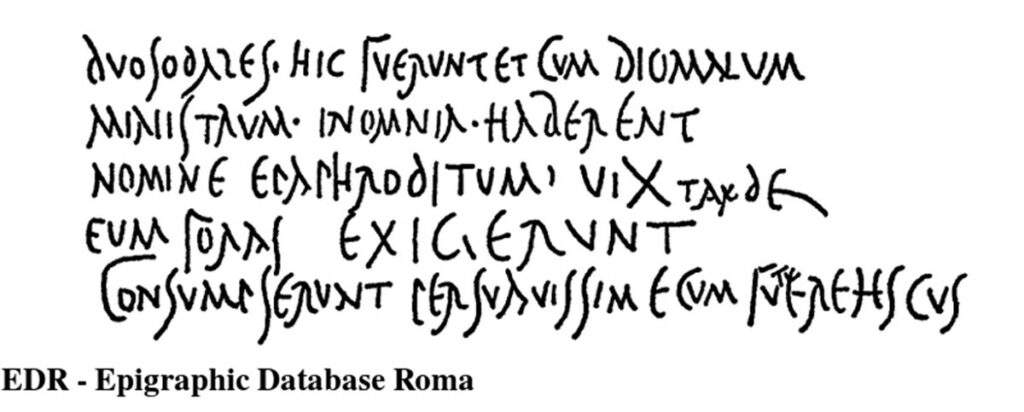 DUO SODALES · HIC FUERUNT ET CUM DIU MALUM
MINISTRUM · IN OMNIA · HABERENT
NOMINE EPAPHRODITUM · VIX TARDE
EUM FORAS EXIGERUNT
CONSUMPSERUNT PERSUAVISSIME CUM FUTUERE HS CVS
EDR - Epigraphic Database Roma